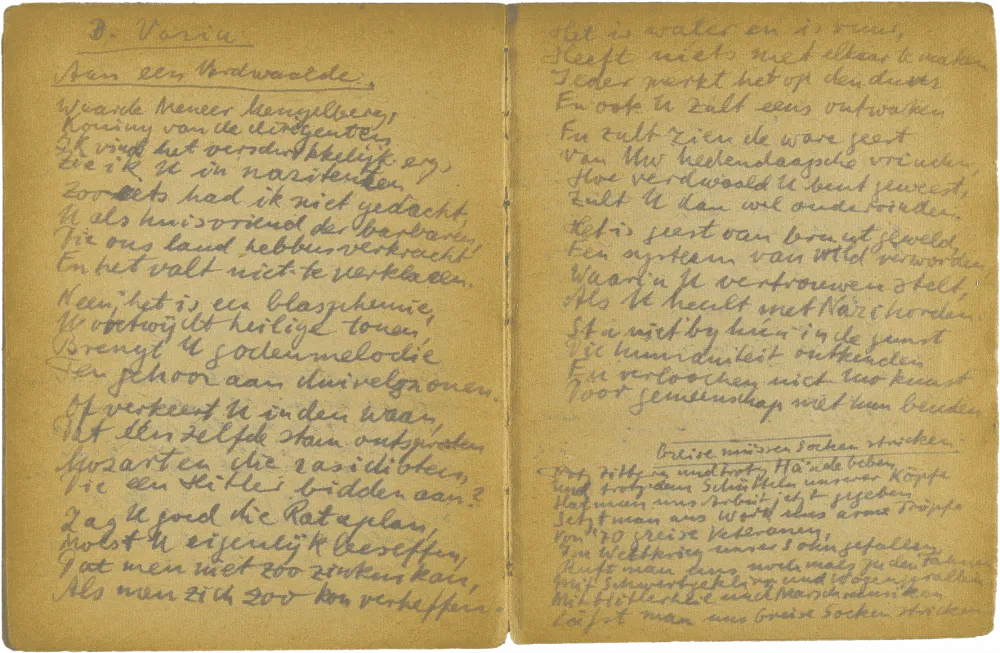 D. Varia.
Aan een Verdwaalde.
Waarde Meneer Mengelberg,
Koning van de dirigenten
Ik vind het verschrikkelijk erg,
Zie ik U in nazitenten
Zooiets had ik niet gedacht,
U als huisvriend der barbaren,
Die ons land hebben verkracht
En het valt niet te verklaren.
Neen, het is een blasphemie,
U ontwijdt heilige tonen,
Brengt U godenmelodie
Ten gehoor aan duivelszonen.
Of verkeert U in den waan,
Dat één zelfde stam ontsproten
Mozart en die
Die een Hitler bidden aan?
Zag U goed die Rataplan,
Moest U eigenlijk beseffen,
Dat men niet zoo zinken kan,
Als men zich zoo kon verheffen.
Het is water en is vuur,
Heeft niets met elkaar te maken
Ieder merkt het op den duur
En ook U zult eens ontwaken
En zult zien de ware geest
van Uw hedendaagsche vrinden,
Hoe verdwaald U bent geweest,
Zult U dan wel ondervinden.
Het is geest van bruut geweld,
Een systeem van wild verworden,
Waarin U vertrouwen stelt,
Als U heult met Nazihorden
Sta niet by hun in de gunst
Die humaniteit ontkenden
En verloochen niet Uw kunst
Door gemeenschap met hun benden
Greise müssen Socken stricken.
Trotz Zittern und trotz Hände beben
und trotz dem Schütteln unsrer Köpfe
Hat man uns Arbeit jetzt gegeben
Setzt man aus uns arme Tröpfe
Von 70 greise Veteranen,
Im Weltkrieg unser Sohn gefallen
Ruft man uns nochmals zu den Fahnen
Mit Schwertgeklirr und Wogenprallen
Mit und Marschmusiken
Lässt man uns Greise Socken stricken